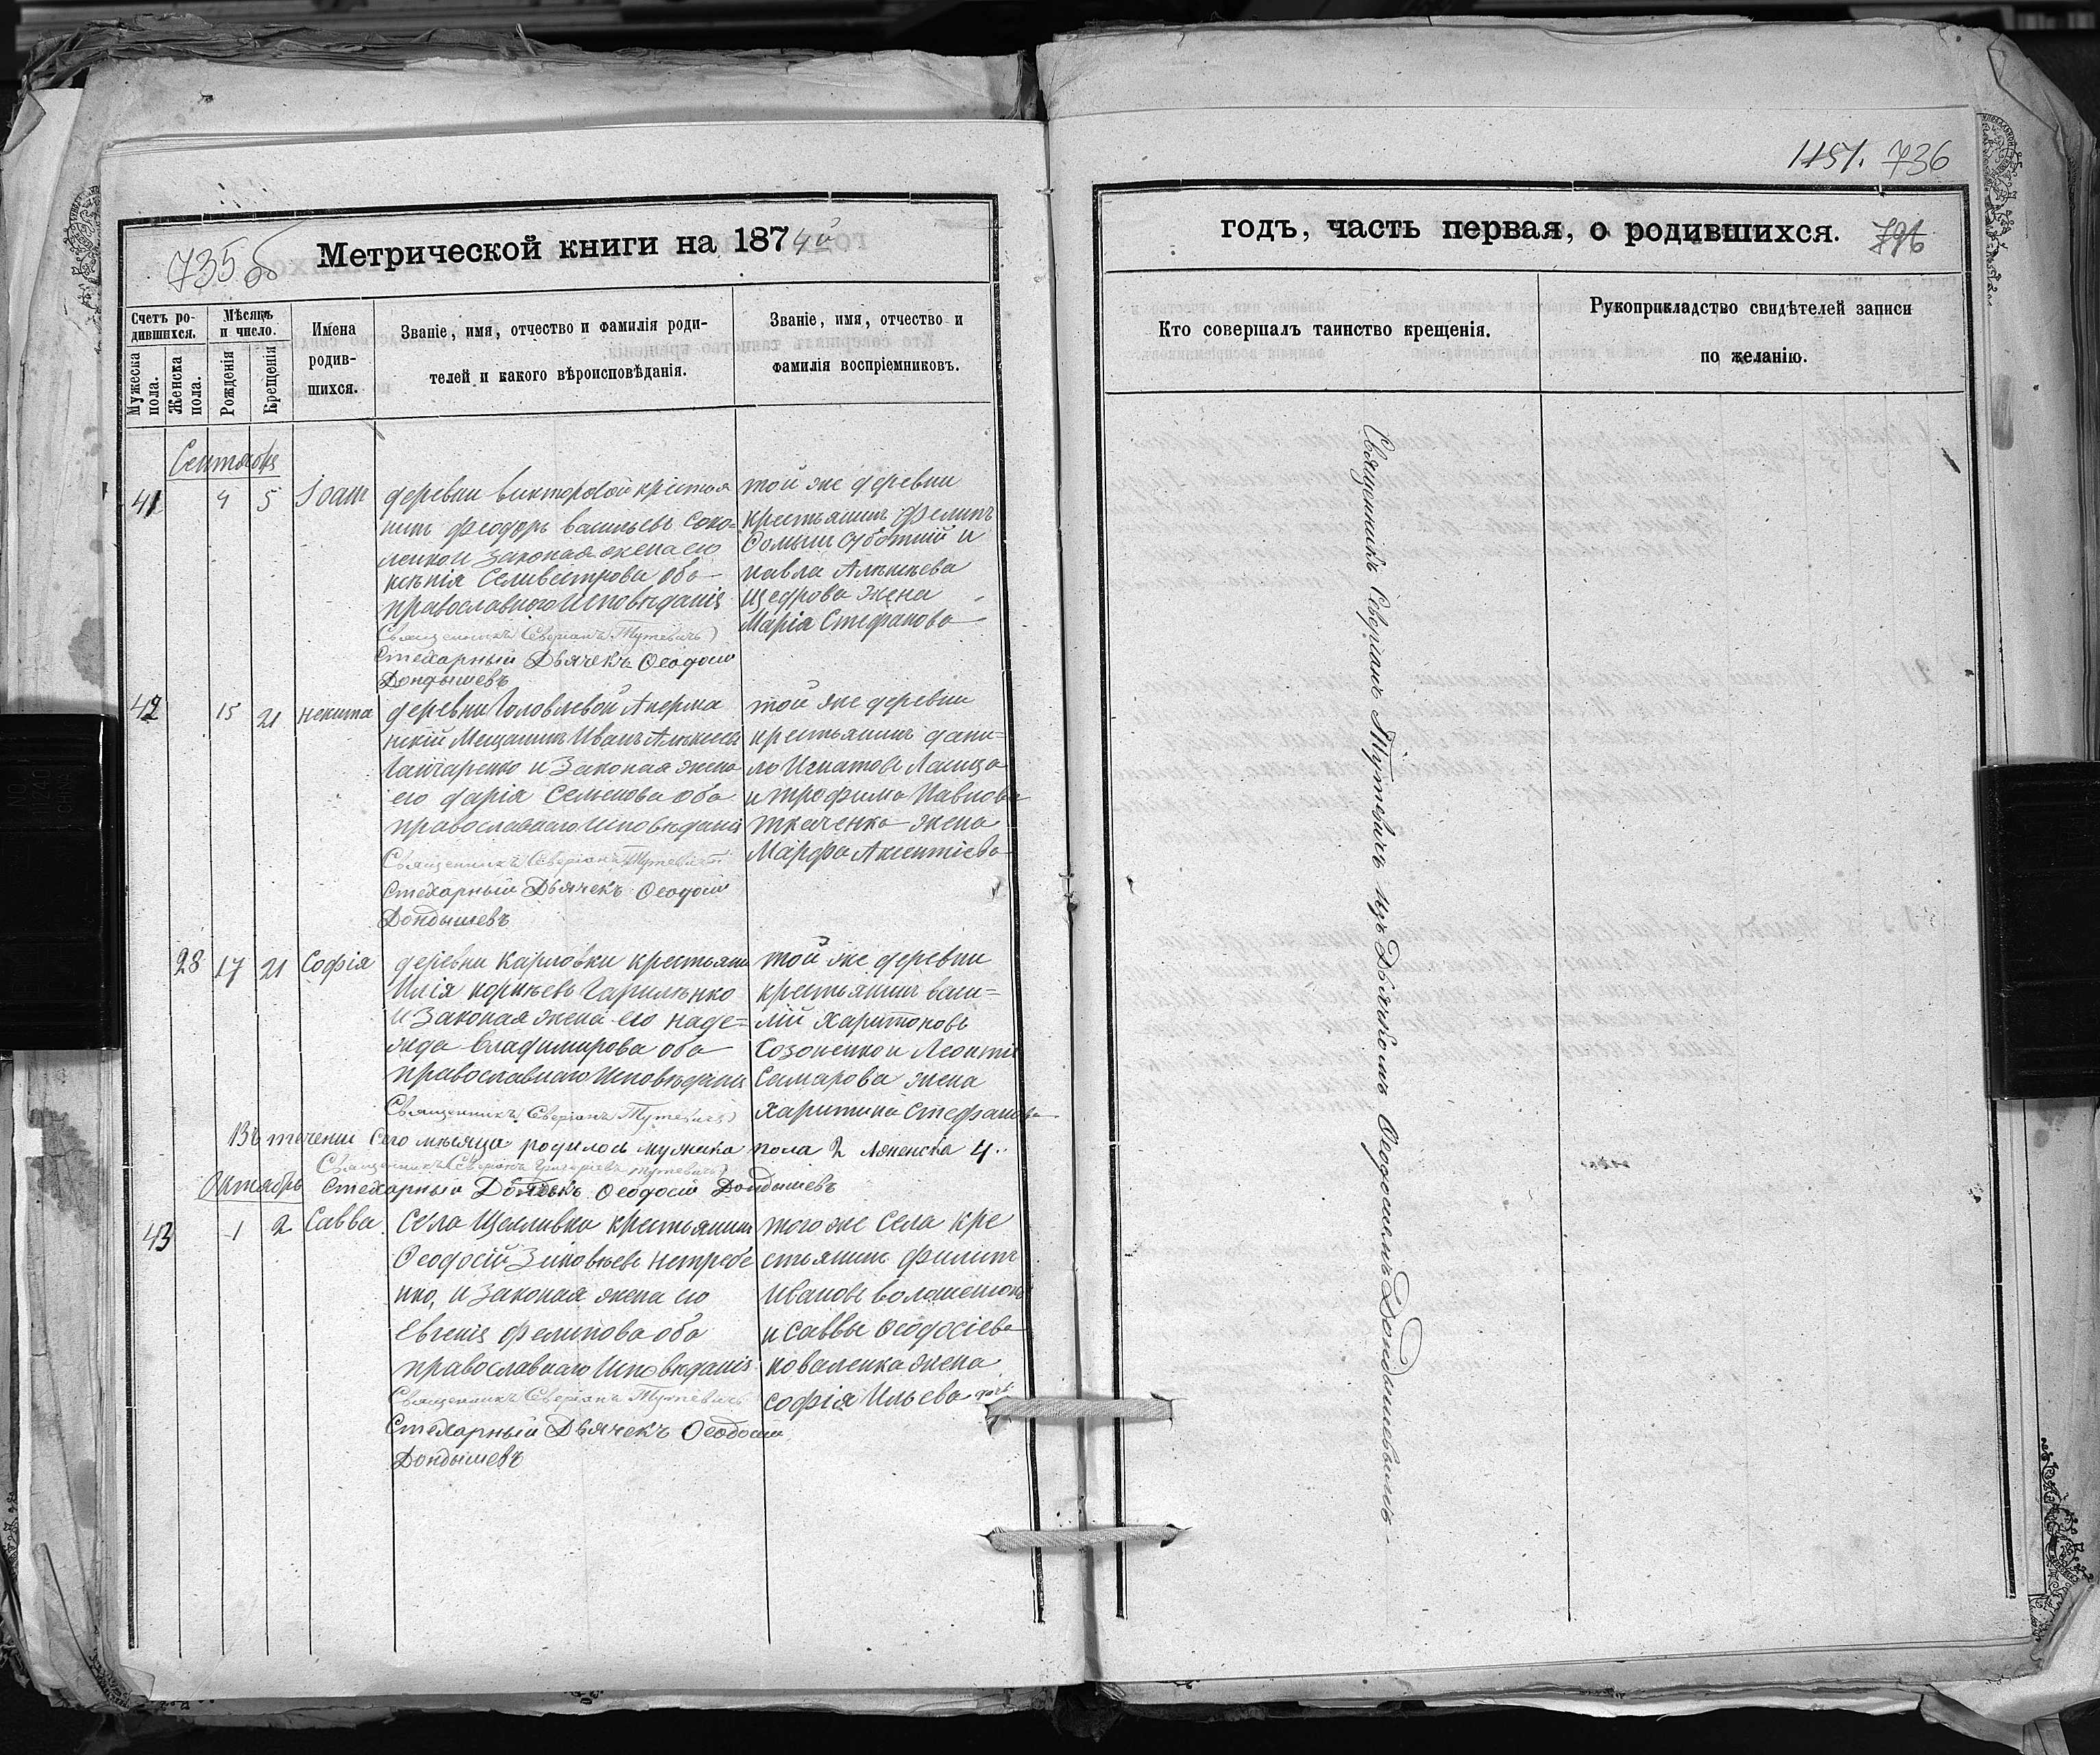 735 об
Метрической книги на 1874й
Счетъ ро-
дившихся.
Мужеска пола.
Женска пола.
Мѣсяцъ
и число.
Рожденія
Крещенія
Имена
родив-
шихся.
Званіе, имя, отчество и фамилія роди-
телей и какого вѣроисповѣданія.
Званіе, имя, отчество и
фамилія воспріемниковъ.
Сентябрь
41 4 5 Іоанъ
деревни Викторовой крістья
нинъ Феодоръ Васильевъ Соко-
ленко и Законая жена его
Ксѣнія Селивестрова оба
православного Исповѣданія
Священникъ Северіанъ Тутевичъ
Стехарный Дьячекъ Ѳеодосій
Дондышевъ
той же деревни
крестьянинъ Фелипъ
и
павла Алѣкѣева
Щедрова жена
Марія Стефанова
42 15 21 Некита
деревни Головлевой Акерма
нскій Мещанинъ Иванъ Алѣксеевъ
Ганчаренко и Законая жена
его дарія Семенова оба
православнаго Исповѣданія
Священникъ Северіанъ Тутевичъ
Стехарный Дьячекъ Ѳеодосій
Дондышевъ
той же деревни
крестьянинъ дани-
ло Игнатовъ
и трофима Павлова
ткаченка жена
Марфа Аксентіева
28 17 21 Софія
деревни Карловки крестьяни
Илія корнѣевъ Гарилѣнко
и Законая жена его наде-
жда Владимирова оба
православнаго Исповѣданія
Священникъ Северіанъ Тутевичъ
той же деревни
крестьянинъ васи-
лій Харитоновъ
Созоненко и Леонтія
Самарова жена
Харитина Стефанова
Въ течении сего мѣсяца родилось мужска пола 2 Женска 4.
Священникъ Северіанъ Григоріевъ Тутевичъ
Октябрь Стехарный Дьячекъ Ѳеодосій Дондышевъ
43 1 2 Савва
Села Щасливки крестьянинъ
Ѳеодосій Зиновѣевъ Нетребе
нко, и Законая жена его
Евгенія Фелипова оба
православнаго Исповѣданія
Священникъ Северіанъ Тутевичъ
Стехарный Дьячекъ Ѳеодосій
Дондышевъ
того же Села кре
стьянинъ Филипъ
Ивановъ
и Саввы Ѳеодосіева
коваленка жена
софія Ильева
1151. 736
годъ, часть первая, о родившихся. 796
Кто совершалъ таинство крещенія.
Рукоприкладство свидѣтелей записи
по желанію.
Священникъ Северіанъ Тутевичъ изъ Дьячкомъ Ѳеодосіемъ Дондышевымъ